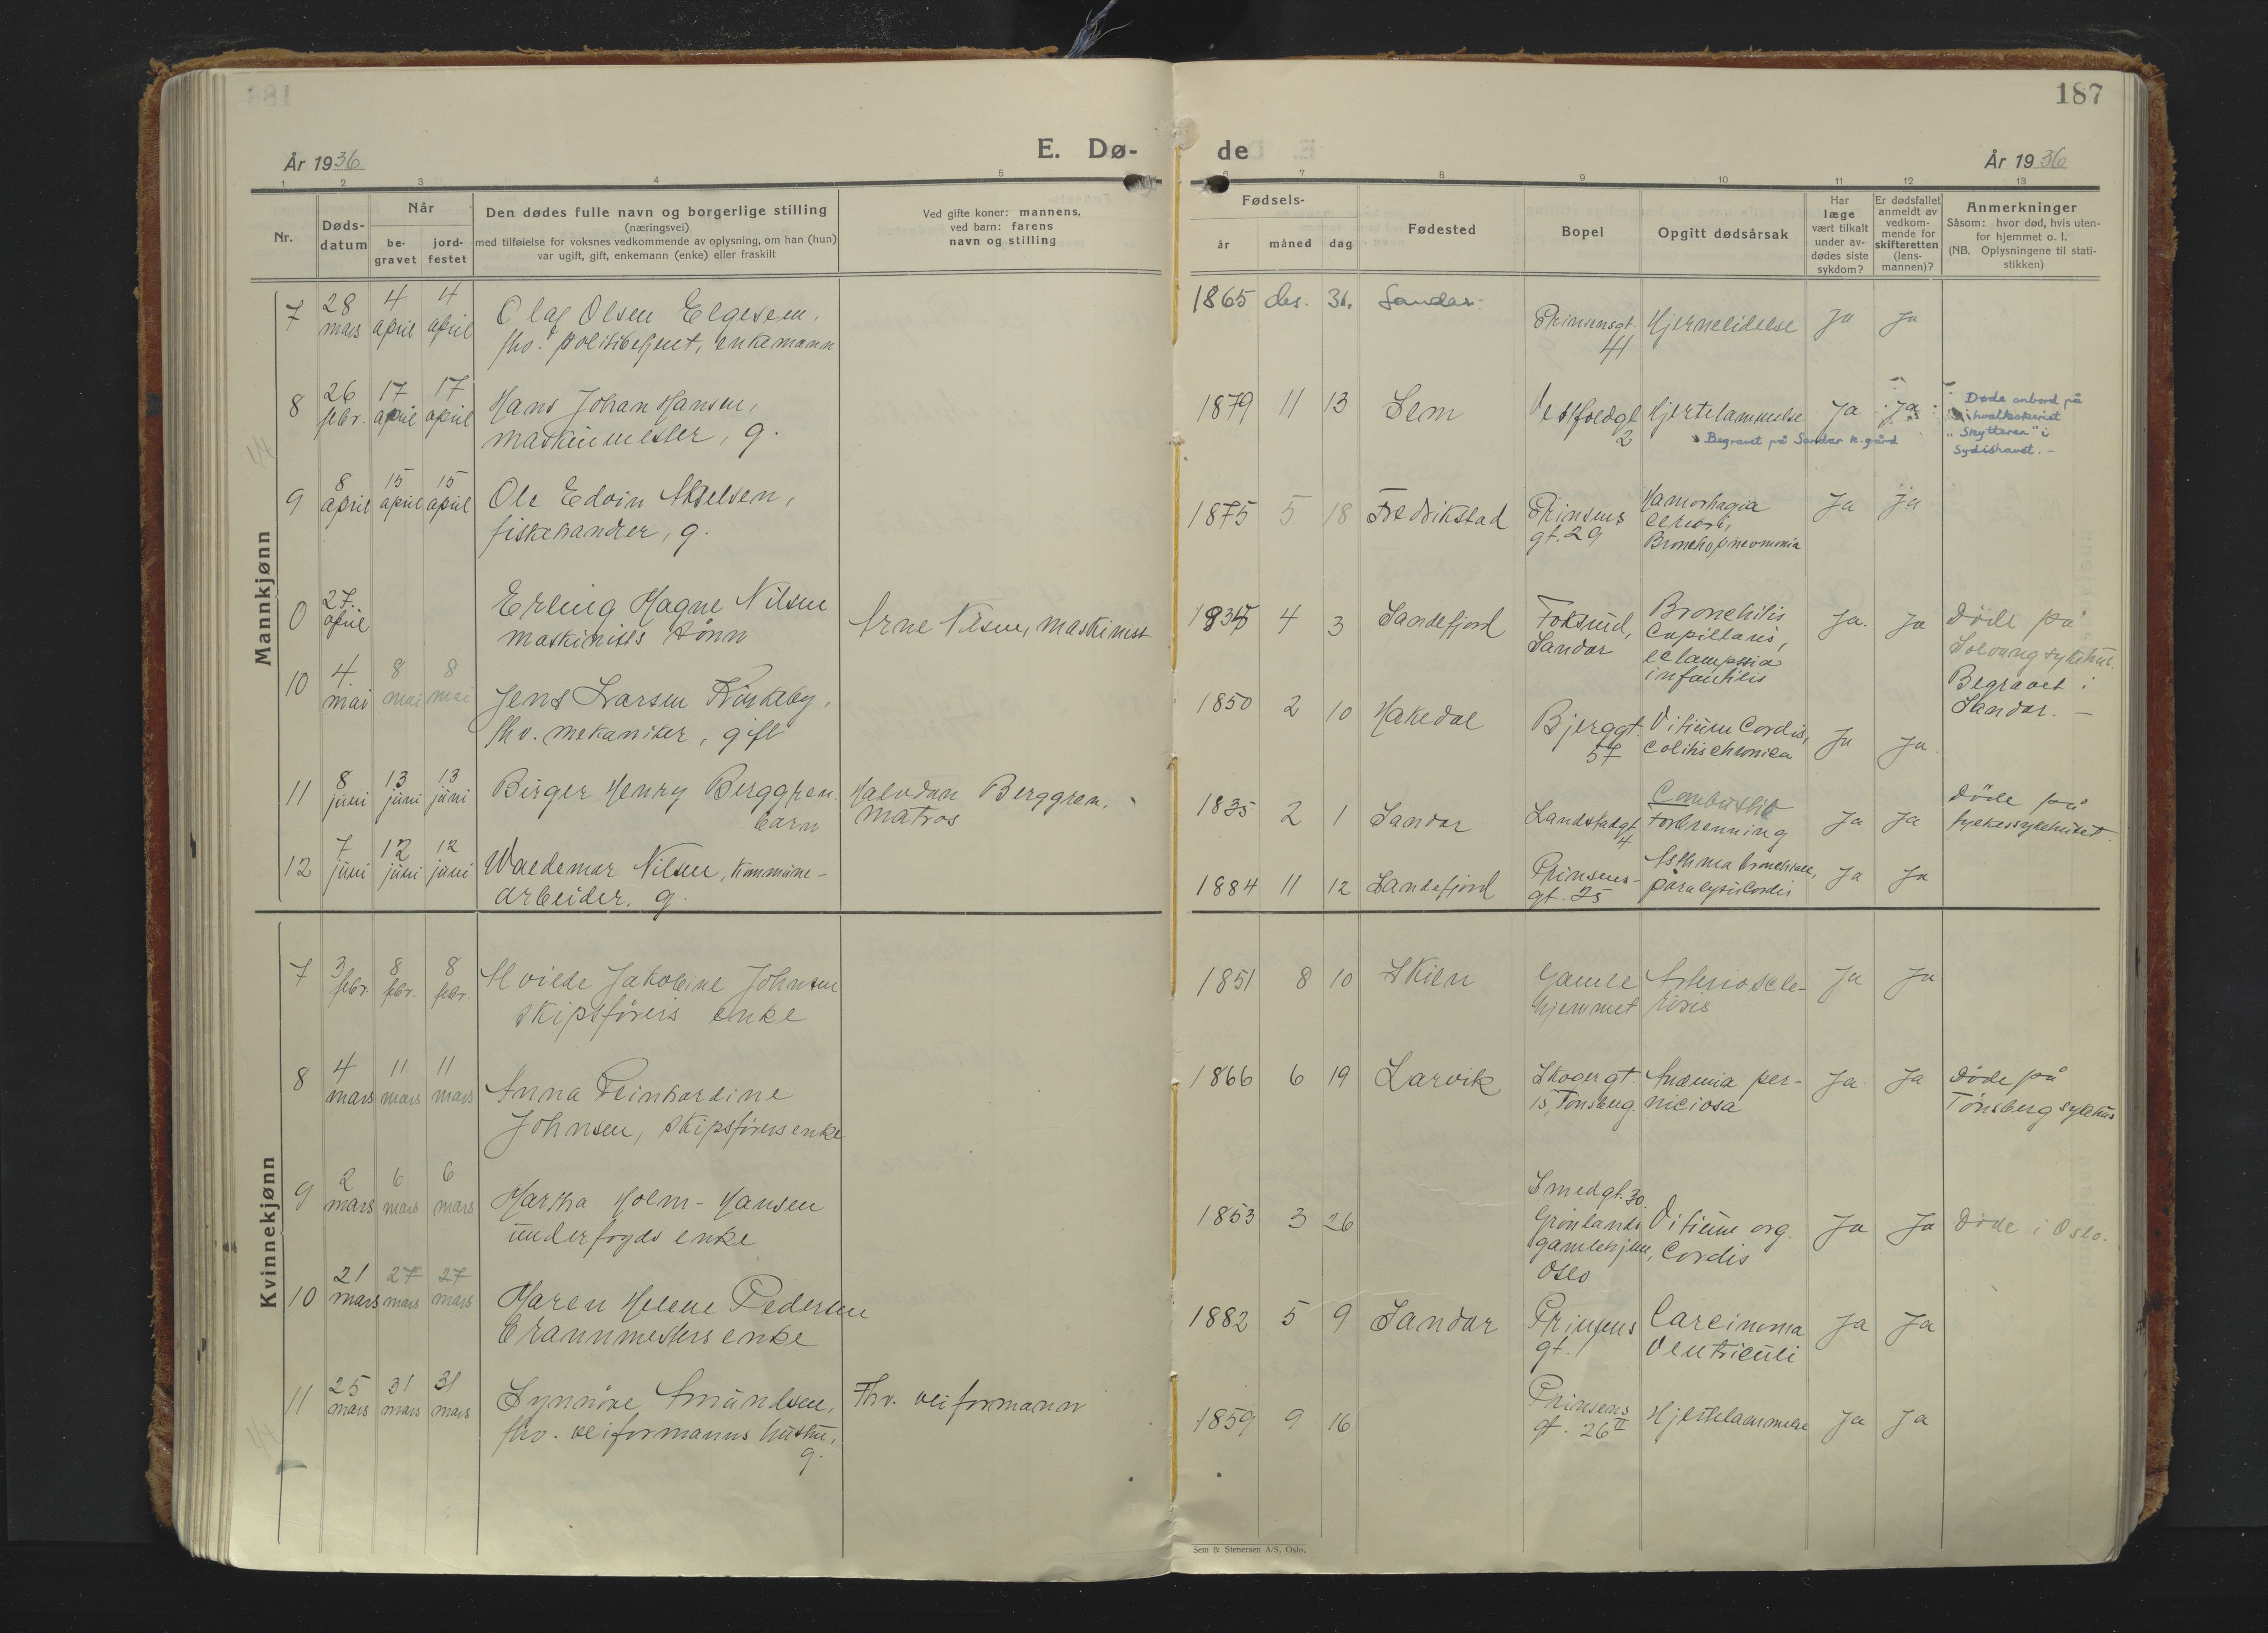 187
E. Dø-
de
År 1936
År 1936
1 2 3 4 5 6 7 8 9 10 11 12 13
Nr.
Døds-
datum
Når
be-
gravet
jord-
festet
Den dødes fulle navn og borgerlige stilling
(næringsvei)
med tilføielse for voksnes vedkommende av oplysning, om han (hun)
var ugift, gift, enkemann (enke) eller fraskilt
Ved gifte koner: mannens,
ved barn: farens
navn og stilling
Fødsels-
år måned dag
Fødested
Bopel
Opgitt dødsårsak
Har
læge
vært tilkalt
under av-
dødes siste
sykdom?
Er dødsfallet
anmeldt av
vedkom-
mende for
skifteretten
(lens-
mannen)?
Anmerkninger
Såsom: hvor død, hvis uten-
for hjemmet o. l.
(NB. Oplysningene til stati-
stikken)
Mannkjønn
7
28
mars
4
april
4
april
Olaf Olsen Elgesem,
fhv. politibetjent, enkemann
1865 des. 31. Sandar
Prinsensgt.
41
Hjernelidelse
Ja
Ja
8
26
febr.
17
april
17
april
Hans Johan Hansen,
maskinmester, g.
1879 11 13 Sem
Vestfoldgt
2
Hjertelammelse
Begravet på Sandar k.gård
Ja
Ja
Døde ombord på
hvalkokeriet
"Skytteren" i
Sydishavet. -
9
8
april
15
april
15
april
Ole Edvin Akselsen,
fiskehandler, g.
1875 5 18 Fredrikstad
Prinsens
gt. 29
Hamorhagia
cerebri,
Bronchopneumonia
Ja
ja
0
27.
april
Erling Magne Nilsen
maskinists sønn
Arne Nilsen, maskinist
4 3 Sandefjord
Foksrud,
Sandar
Bronchitis
Capillaris,
eclampssia
infantilis
Ja.
Ja
Døde på
Solvang sykehus.
Begravet i
Sandar. -
10
4.
mai
8
mai
8
mai
Jens Larsen
fhv. mekaniker, gift
1850 2 10 Hakedal
Bjerggt.
57
Vitium Cordis,
Colitis chronica
Ja
Ja
11
8
juni
13
juni
13
juni
Birger Henry Berggren
barn
Halvdan Berggren,
matros
1835 2 1 Sandar
Landstadgt
4
Combustio
Forbrenning
Ja
Ja
Døde på
fylkessykehuset.
12
7
juni
12
juni
12
juni
Waldemar Nilsen, kommune-
arbeider. g.
1884 11 12 Sandefjord
Prinsens-
gt. 25
Asthma bronchiale,
paralysis Cordis
Ja
Ja
Kvinnekjønn
7
3
febr.
8
febr.
8
febr.
Alvilde Jakobine Johnsen
skipsførers enke
1851 8 10 Skien
Gamle
hjemmet
Arterioscle-
rosis
Ja
Ja
8
4
mars
11
mars
11
mars
Anna Reinhardine
Johnsen, skipsførersenke
1866 6 19 Larvik
Skogergt.
15, Tønsberg.
Anæmia per-
niciosa
Ja
Ja
Døde på
Tønsberg sykehus
9
2
mars
6
mars
6
mars
Martha Holm-Hansen
underfogds enke
1853 3 26
Smedgt. 30.
Grønlands
gamlehjem,
Oslo
Vitium org.
Cordis
Ja
Ja
Døde i Oslo.
10
21
mars
27
mars
27
mars
Maren Helene Pedersen
brannmesters enke
1882 5 9 Sandar
Prinsens
gt. 1
Carcinoma
Ventriculi
Ja
Ja
11
25
mars
31
mars
31
mars
Synnøve Amundsen,
fhv. veiformanns hustru,
g.
Fhv. veiformann
1859 9 16
Prinsens
gt. 26 II
Hjertelammelse
Ja
Ja
Sem & Stenersen A/S, Oslo.